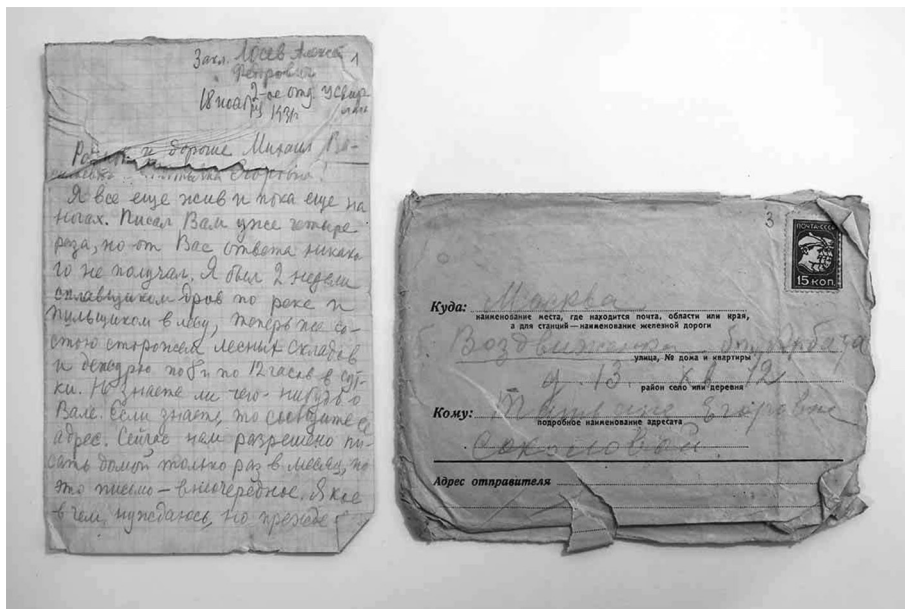 Закл. Лосев Алексей
Петрович
1
2-ое отд. Усвир
лага
18 нояб
1931
и дорогие Михаил Ва-
Егоровна!
Я все еще жив и пока еще на
ногах. Писал Вам уже четыре
раза, но от Вас ответа никако
го не получал. Я был 2 недели
сплавщиком дров по реке и
пильщиком в лесу, теперь же со-
стою сторожем лесных складов
и дежурю по 8 и по 12 часов в сут-
ки. Не знаете ли чего-нибудь о
Вале. Если знаете, то сообщите ее
адрес. Сейчас нам разрешено пи-
сать домой только раз в месяц, но
это письмо – внеочередное. Я кое
в чем нуждаюсь, но прежде
3
ПОЧТА-СССР
15 КОП.
Куда: Москва
наименование места, где находится почта, области или края,
а для станций—наименование железной дороги
Воздвиженка Арбата
улица, № дома и квартиры
д. 13 кв. 12
район село или деревня
Кому: Татьяне Егоровне
подробное наименование адресата
Соколовой
Адрес отправителя